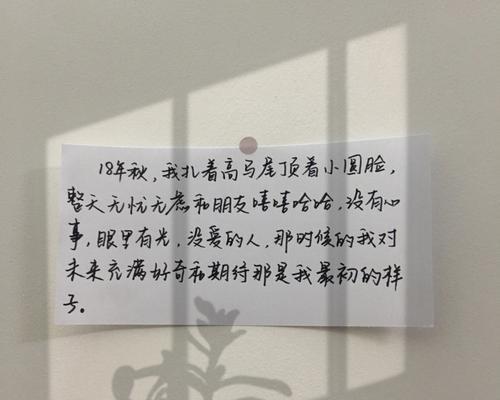 18年秋，我扎着高马尾顶着小圆脸，
整天无忧无虑和朋友嘻嘻哈哈，没有心
事，眼里有光，没爱的人，那时候的我对
未来充满好奇和期待那是我最初的样
子。